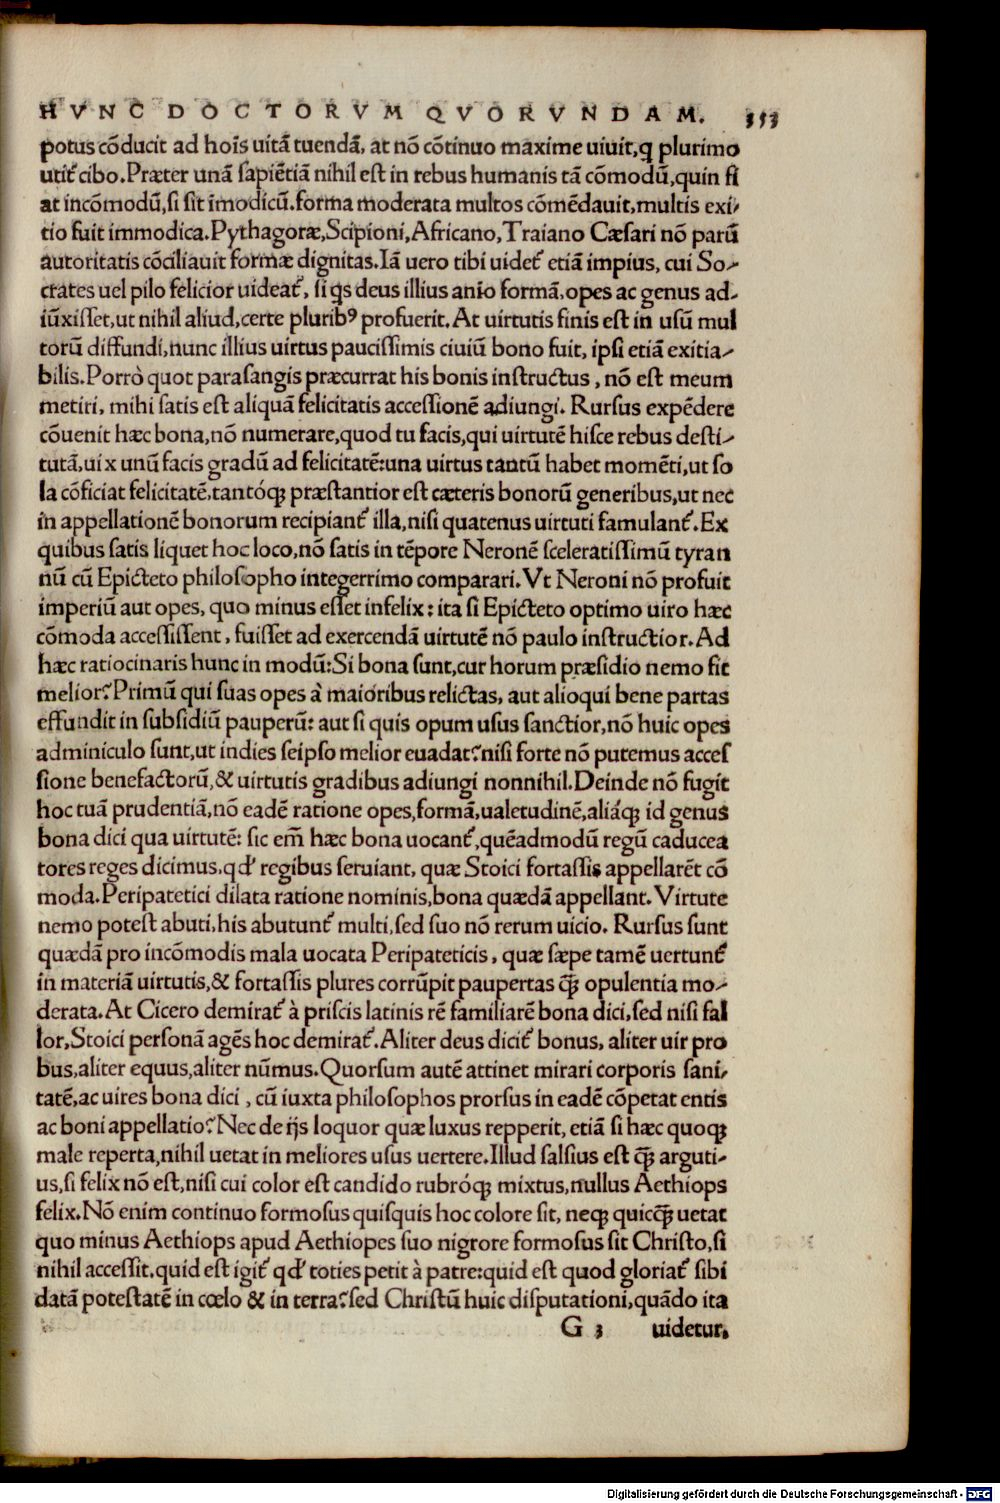 HVNC DOCTORVM QVORVNDAM. 353
potus cōducit ad hoīs uitā tuendā, at nō cōtinuo maxime uiuit, q plurimo
utit᷑ cibo. Præter unā sapiētiā nihil est in rebus humanis tā cōmodū, quin fi
at incōmodū, si sit īmodicū. forma moderata multos cōmēdauit, multis exi-
tio fuit immodica. Pythagoræ, Scipioni, Africano, Traiano Cæsari nō parū
autoritatis cōciliauit formæ dignitas. Iā uero tibi uidet᷑ etiā impius, cui So-
crates uel pilo felicior uideat᷑, si qs deus illius anio formā, opes ac genus ad-
iūxisset, ut nihil aliud, certe pluribꝰ profuerit. At uirtutis finis est in usū mul
torū diffundi, nunc illius uirtus paucissimis ciuiū bono fuit, ipsi etiā exitia-
bilis. Porrò quot parasangis præcurrat his bonis instructus, nō est meum
metiri, mihi satis est aliquā felicitatis accessionē adiungi. Rursus expēdere
cōuenit hæc bona, nō numerare, quod tu facis, qui uirtutē hisce rebus desti-
tutā, uix unū facis gradū ad felicitatē: una uirtus tantū habet momēti, ut so
la cōficiat felicitatē, tantóqꝫ præstantior est cæteris bonorū generibus, ut nec
in appellationē bonorum recipiant᷑ illa, nisi quatenus uirtuti famulant᷑. Ex
quibus satis liquet hoc loco, nō satis in tēpore Neronē sceleratissimū tyran
nū cū Epicteto philosopho integerrimo comparari. Vt Neroni nō profuit
imperiū aut opes, quo minus esset infelix: ita si Epicteto optimo uiro hæc
cōmoda accessissent, fuisset ad exercendā uirtutē nō paulo instructior. Ad
hæc ratiocinaris hunc in modū: Si bona sunt, cur horum præsidio nemo fit
melior? Primū qui suas opes à maioribus relictas, aut alioqui bene partas
effundit in subsidiū pauperū: aut si quis opum usus sanctior, nō huic opes
adminiculo sunt, ut indies seipso melior euadat? nisi forte nō putemus acces
sione benefactorū, & uirtutis gradibus adiungi nonnihil. Deinde nō fugit
hoc tuā prudentiā, nō eadē ratione opes, formā, ualetudinē, aliáqꝫ id genus
bona dici qua uirtutē: sic em̄ hæc bona uocant᷑, quēadmodū regū caducea
tores reges dicimus, qđ regibus seruiant, quæ Stoici fortassis appellarēt cō
moda. Peripatetici dilata ratione nominis, bona quædā appellant. Virtute
nemo potest abuti, his abutunt᷑ multi, sed suo nō rerum uicio. Rursus sunt
quædā pro incōmodis mala uocata Peripateticis, quæ sæpe tamē uertunt᷑
in materiā uirtutis, & fortassis plures corrūpit paupertas q̄ꝫ opulentia mo-
derata. At Cicero demirat᷑ à priscis latinis rē familiarē bona dici, sed nisi fal
lor, Stoici personā agēs hoc demirat᷑. Aliter deus dicit᷑ bonus, aliter uir pro
bus, aliter equus, aliter nūmus. Quorsum autē attinet mirari corporis sani-
tatē, ac uires bona dici, cū iuxta philosophos prorsus in eadē cōpetat entis
ac boni appellatio? Nec de ijs loquor quæ luxus repperit, etiā si hæc quoqꝫ
male reperta, nihil uetat in meliores usus uertere. Illud salsius est q̄ꝫ arguti-
us, si felix nō est, nisi cui color est candido rubróqꝫ mixtus, nullus Aethiops
felix. Nō enim continuo formosus quisquis hoc colore sit, neqꝫ quicq̄ꝫ uetat
quo minus Aethiops apud Aethiopes suo nigrore formosus sit Christo, si
nihil accessit. quid est igit᷑ qđ toties petit à patre: quid est quod gloriat᷑ sibi
datā potestatē in cœlo & in terra? sed Christū huic disputationi, quādo ita
G 3 uidetur,
Digitalisierung gefördert durch die Deutsche Forschungsgemeinschaft - DFG